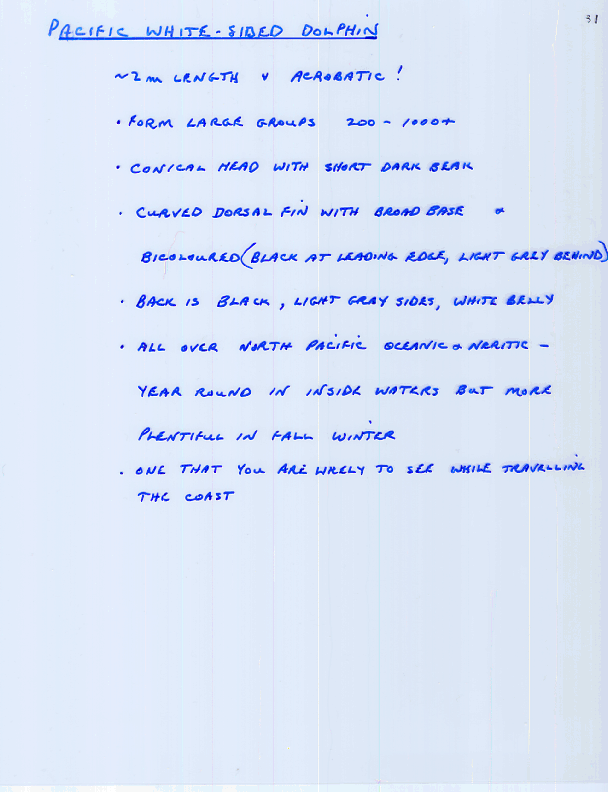 31
PACIFIC WHITE-SIDED DOLPHIN
~2m LENGTH & ACROBATIC!
• FORM LARGE GROUPS 200 - 1000+
• CONICAL HEAD WITH SHORT DARK BEAK
• CURVED DORSAL FIN WITH BROAD BASE &
BICOLOURED (BLACK AT LEADING EDGE, LIGHT GREY BEHIND)
• BACK IS BLACK, LIGHT GRAY SIDES, WHITE BELLY
• ALL OVER NORTH PACIFIC OCEANIC & NERITIC -
YEAR ROUND IN INSIDE WATERS BUT MORE
PLENTIFUL IN FALL WINTER
• ONE THAT YOU ARE LIKELY TO SEE WHILE TRAVELLING
THE COAST